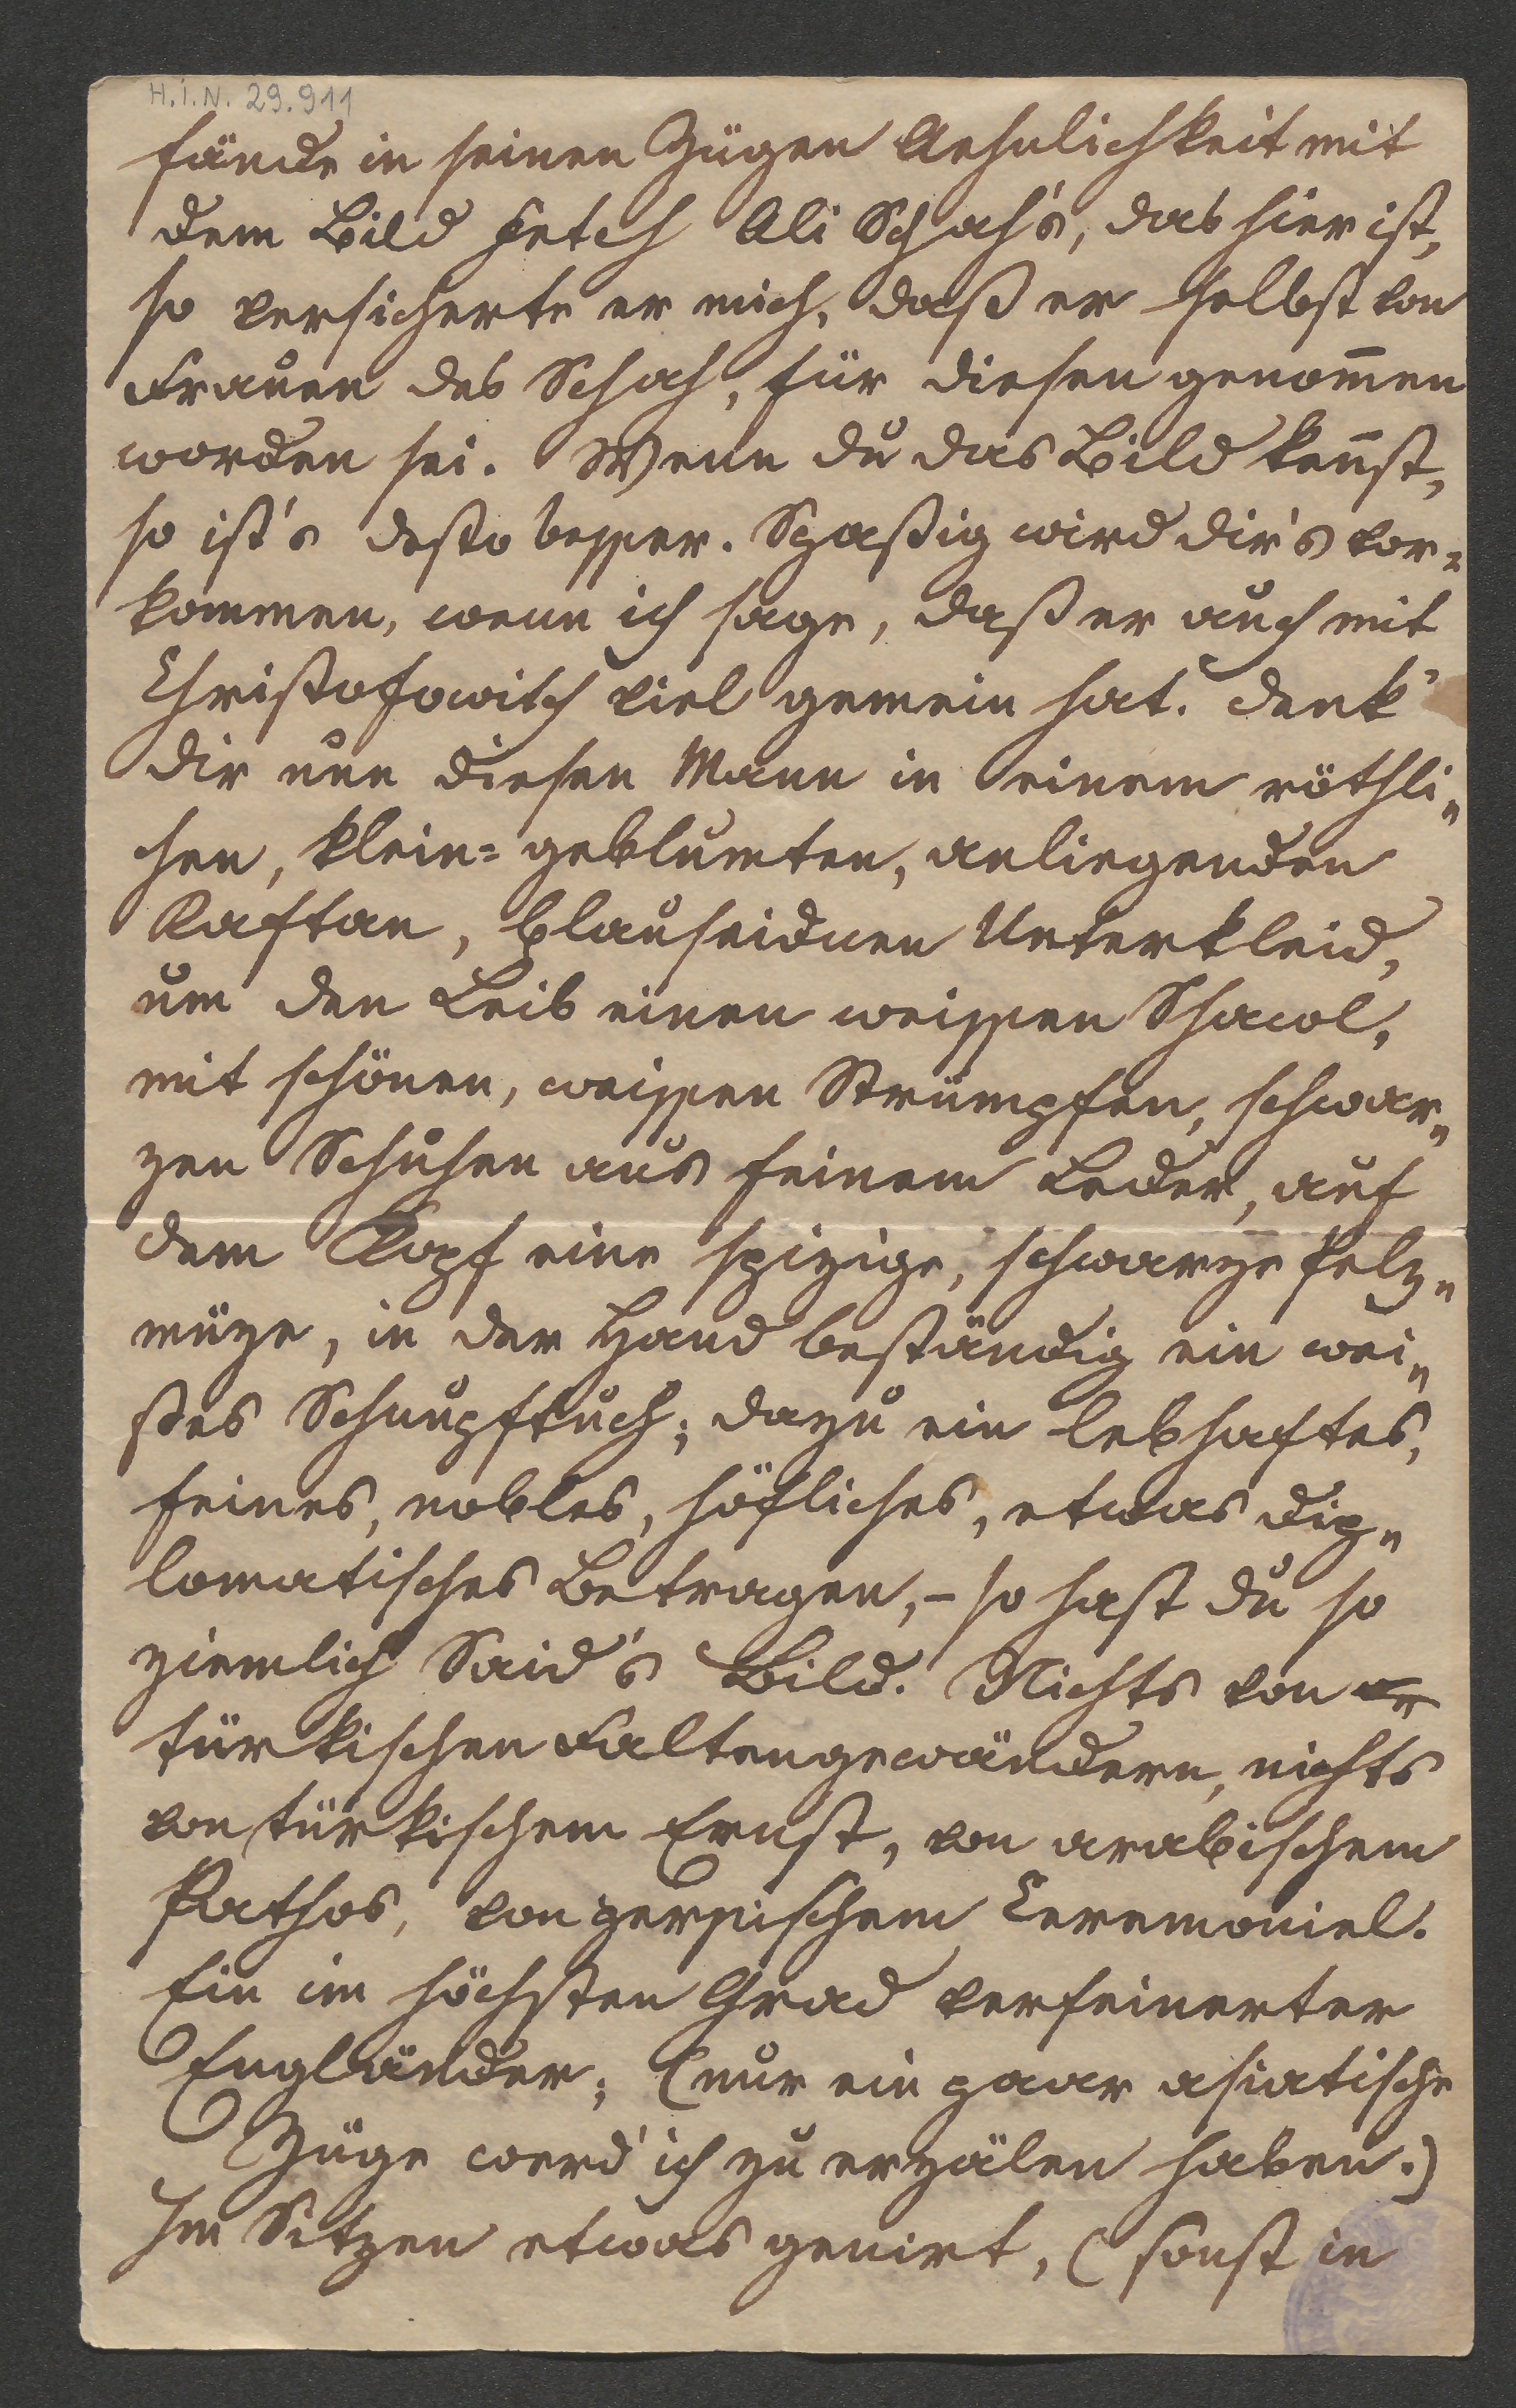 H.I.N. 29.911
fände in seinen Zügen Aehnlichkeit mit
dem Bild Feteh Ali Schah's, das hier ist,
so versicherte er mich, daß er selbst von
Frauen des Schah, für diesen genom̅en
worden sei. Wenn du das Bild ken̅st,
so ist's desto besser. Spaßig wird dir's vor=
kommen, wenn ich sage, daß er auch mit
Christofowitsch viel gemein hat. Denk'
dir nun diesen Mann in einem röthli=
chen, klein=geblumten, anliegenden
Kaftan, blauseidnen Unterkleid,
um den Leib einen weissen Shawl,
mit schönen, weissen Strümpfen, schwar=
zen Schuhen aus feinem Leder, auf
dem Kopf eine spizige, schwarze Pelz=
müze, in der Hand beständig ein wei=
ßes Schnupftuch; dazu ein lebhaftes,
feines, nobles, höfliches, etwas dip=
lomatisches Betragen, – so hast du so
ziemlich Said's Bild. Nichts von
türkischen Faltengewändern, nichts
von türkischem Ernst, von arabischem
Pathos, von persischem Ceremoniel.
Ein im höchsten Grad verfeinerter
Engländer; (nur ein paar asiatische
Züge werd' ich zu erzälen haben.)
Im Sitzen etwas genirt, (sonst in